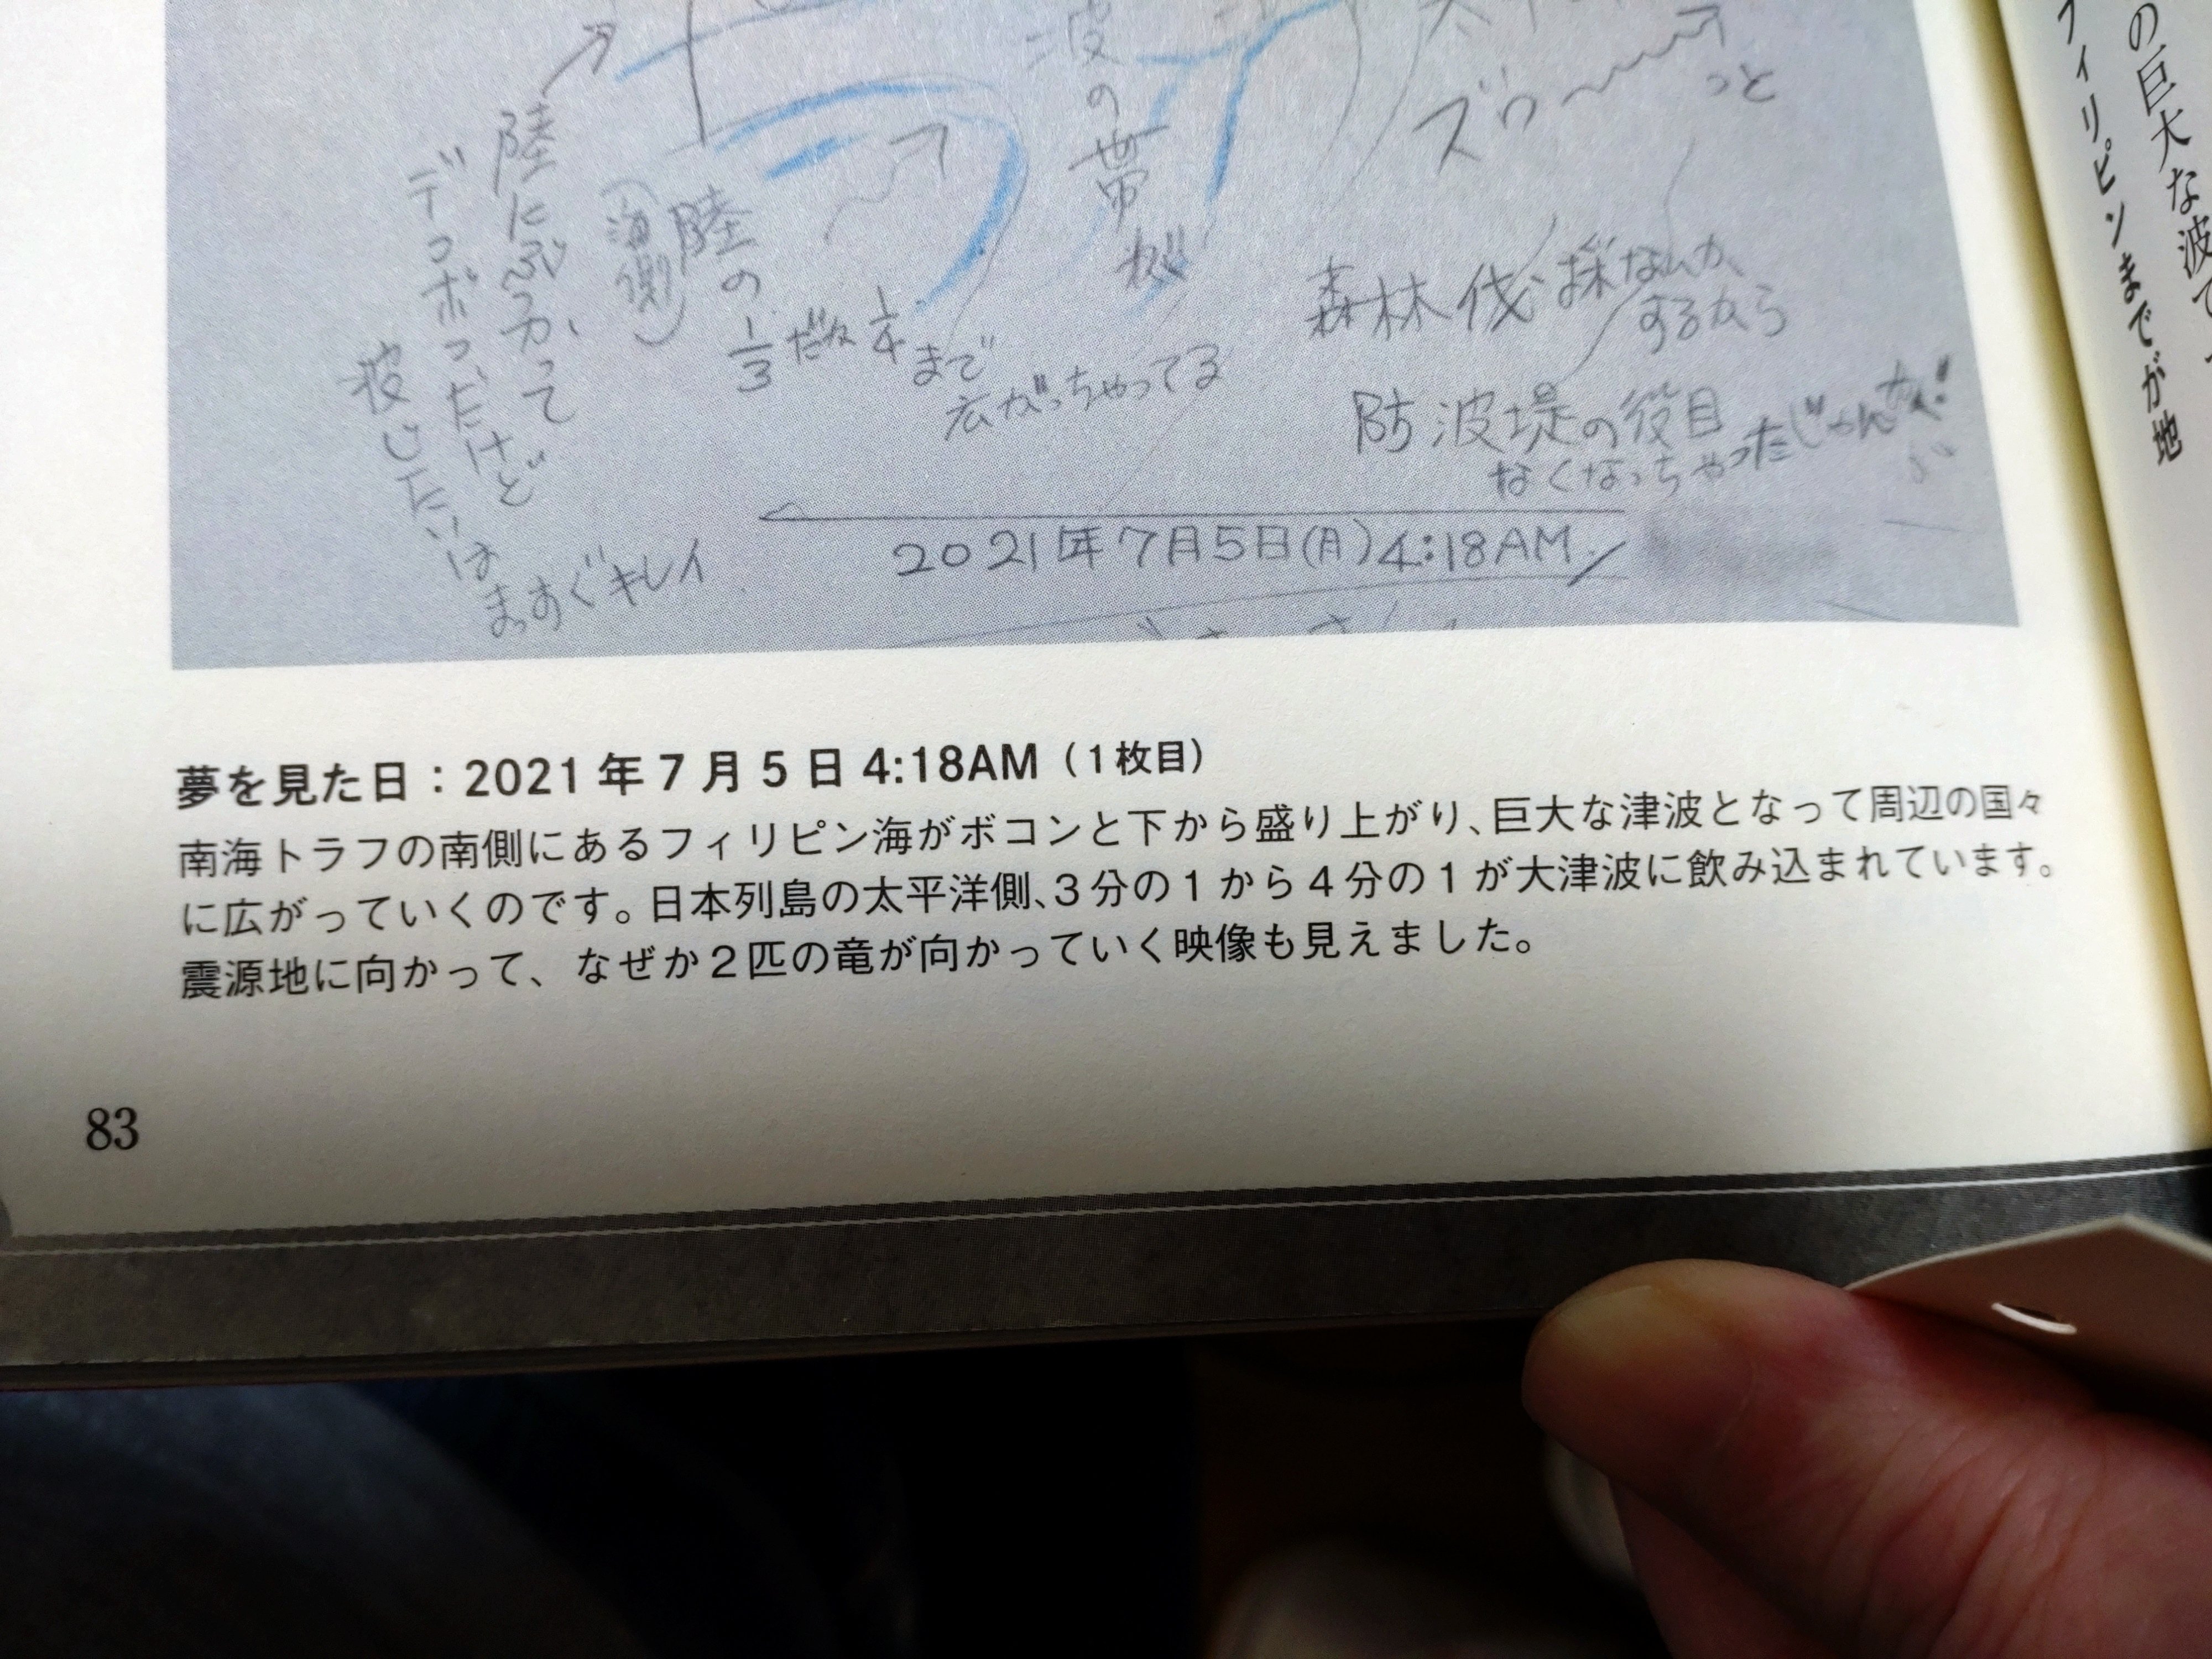 の巨大な波
フィリピンまでが地
波の帯が
ズゥ〜
っと
陸にぶつかって
デコボコだけど
波じたいは
まっすぐキレイ
陸の
(海側)
1/3だね 1/4まで
広がっちゃってる
森林伐採なんか
するから
防波堤の役目
なくなっちゃったじゃんか!
2021年7月5日(月)4:18AM
夢を見た日:2021年7月5日4:18AM(1枚目)
南海トラフの南側にあるフィリピン海がボコンと下から盛り上がり、巨大な津波となって周辺の国々
に広がっていくのです。日本列島の太平洋側、3分の1から4分の1が大津波に飲み込まれています。
震源地に向かって、なぜか2匹の竜が向かっていく映像も見えました。
83